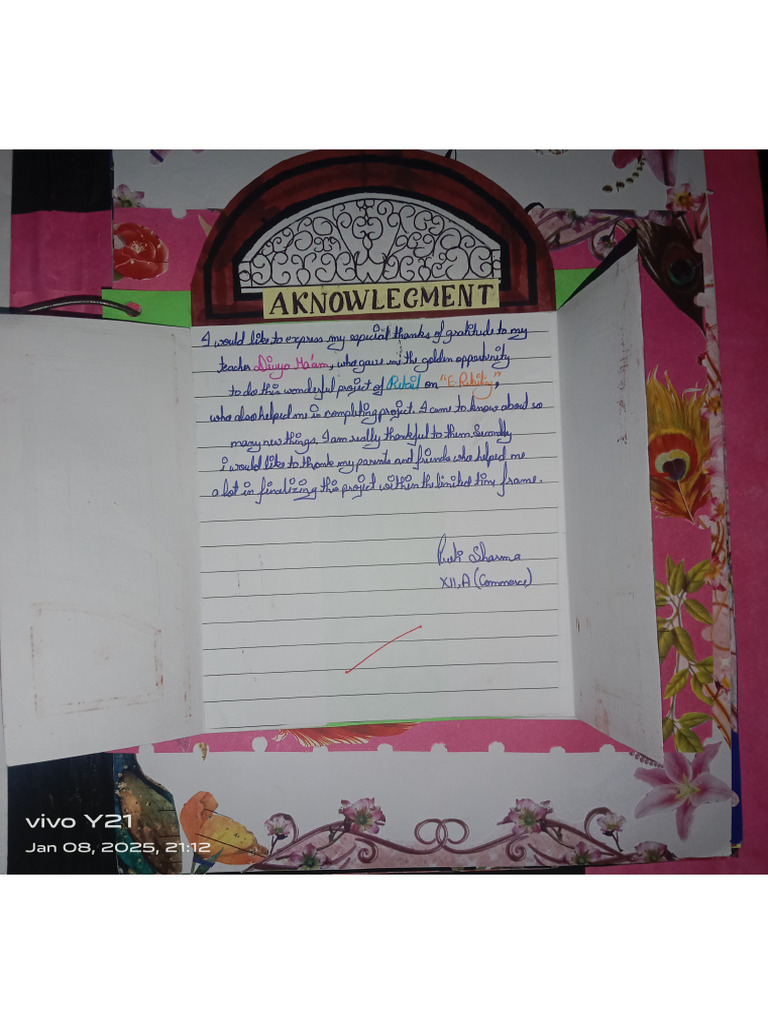 AKNOWLEGMENT
I would like to express my especial thanks of gratitude to my
teacher Divya Ma'am, who gave me the golden opportunity
to do this wonderful project of Retail on "E-Retailing",
who also helped me in completing project. I came to know about so
many new things. I am really thankful to them. Secondly
i would like to thank my parents and friends who helped me
a lot in finalizing this project within the limited time frame.
Sharma
XII, A (Commerce)
vivo Y21
Jan 08, 2025, 21:12